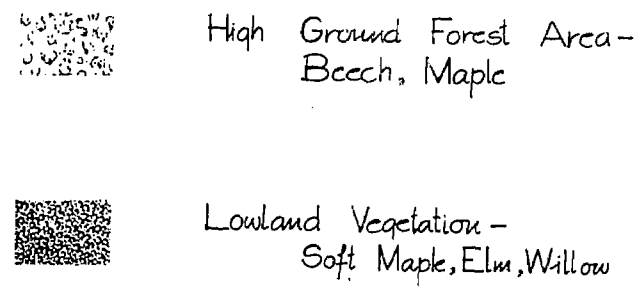 High Ground Forest Area-
Beech, Maple
Lowland Vegetation -
Soft Maple, Elm, Willow